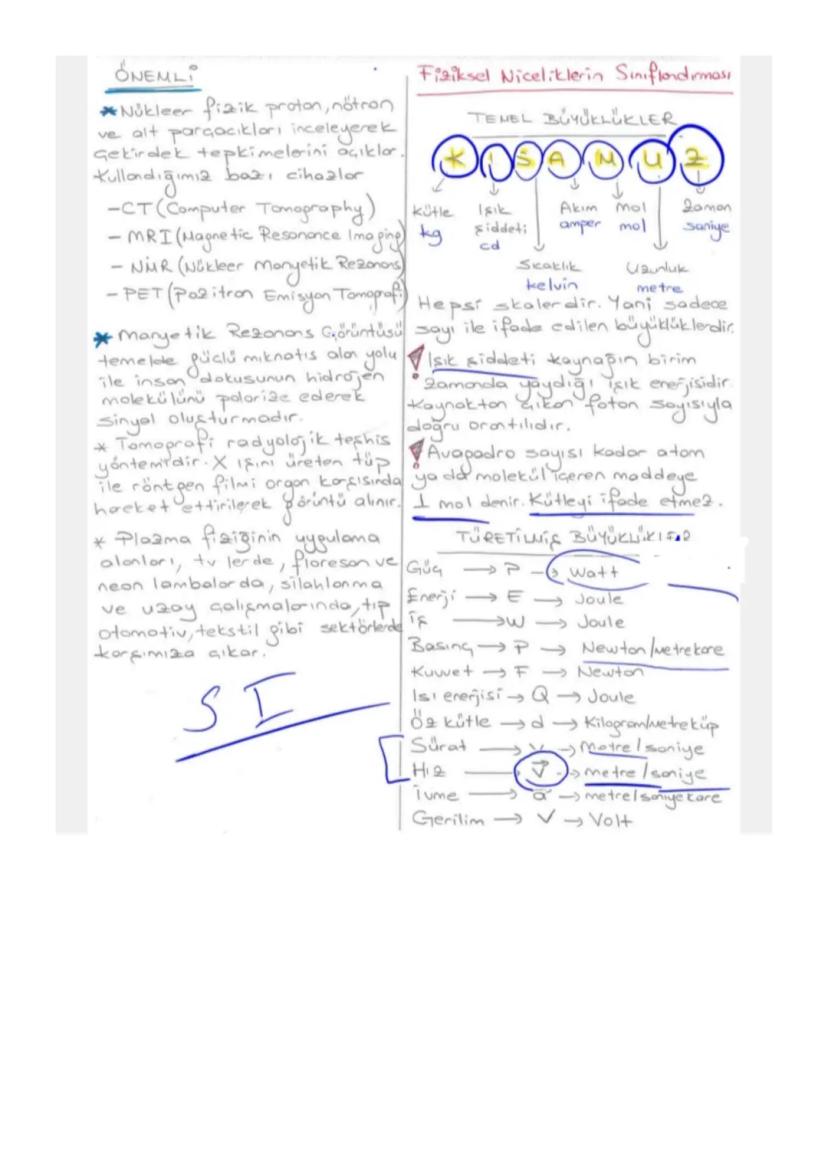 ÖNEMLİ
*Nükleer fizik proton, nötron
ve alt parçacıkları inceleyerek
çekirdek tepkimelerini açıklar.
Kullandığımız bazı cihazlar
-CT (Computer Tomography)
- MRI (Magnetic Resonance Imaging)
- NMR (Nükleer Manyetik Rezonans)
- PET (Pozitron Emisyon Tomografi)
* Manyetik Rezonans Görüntüsü
temelde güçlü mıknatıs alan yolu
ile insan dokusunun hidrojen
molekülünü polarize ederek
sinyal oluşturmadır.
* Tomografi radyolojik teşhis
yöntemidir. X ışını üreten tüp
ile röntgen filmi organ karşısında
hareket ettirilerek görüntü alınır.
* Plazma fiziğinin uygulama
alanları, tv lerde, floresan ve
neon lambalarda, silahlanma
ve uzay çalışmalarında, tıp
otomotiv, tekstil gibi sektörlerde
karşımıza çıkar.
SI
Fiziksel Niceliklerin Sınıflandırması
TEMEL BÜYÜKLÜKLER
K I S A M U Z
Kütle Işık Akım Mol Zaman
kg şiddeti amper mol saniye
cd
Sıcaklık Uzunluk
kelvin metre
Hepsi skalerdir. Yani sadece
sayı ile ifade edilen büyüklüklerdir.
! Işık şiddeti kaynağın birim
zamanda yaydığı ışık enerjisidir.
Kaynaktan çıkan foton sayısıyla
doğru orantılıdır.
! Avagadro sayısı kadar atom
ya da molekül içeren maddeye
1 mol denir. Kütleyi ifade etmez.
TÜRETİLMİŞ
Güç → P → Watt
Enerji → E → Joule
İş → W → Joule
Basınç → P → Newton/Metrekare
Kuvvet → F → Newton
Isı enerjisi → Q → Joule
Öz kütle → d → Kilogram/Metreküp
Sürat → v → Metre/saniye
Hız → v⃗ → metre/saniye
İvme → a⃗ → metre/saniyekare
Gerilim → V → Volt